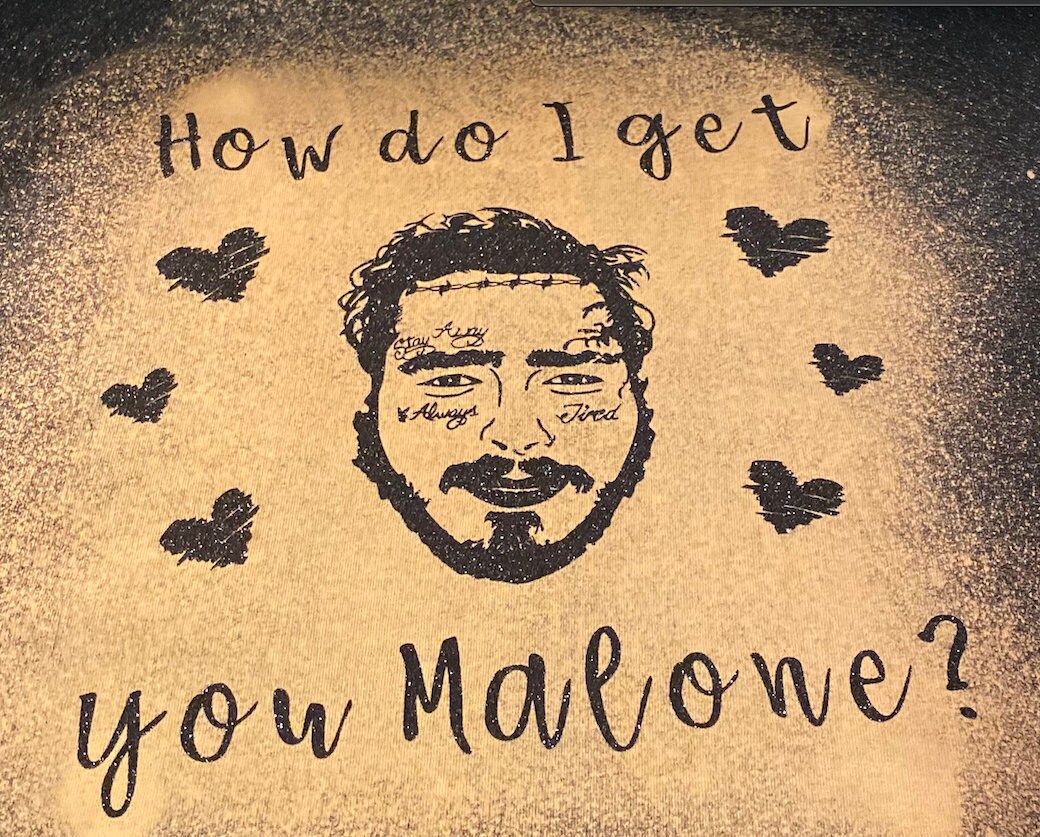 How do I get
Stay Away
Always Tired
you Malone?